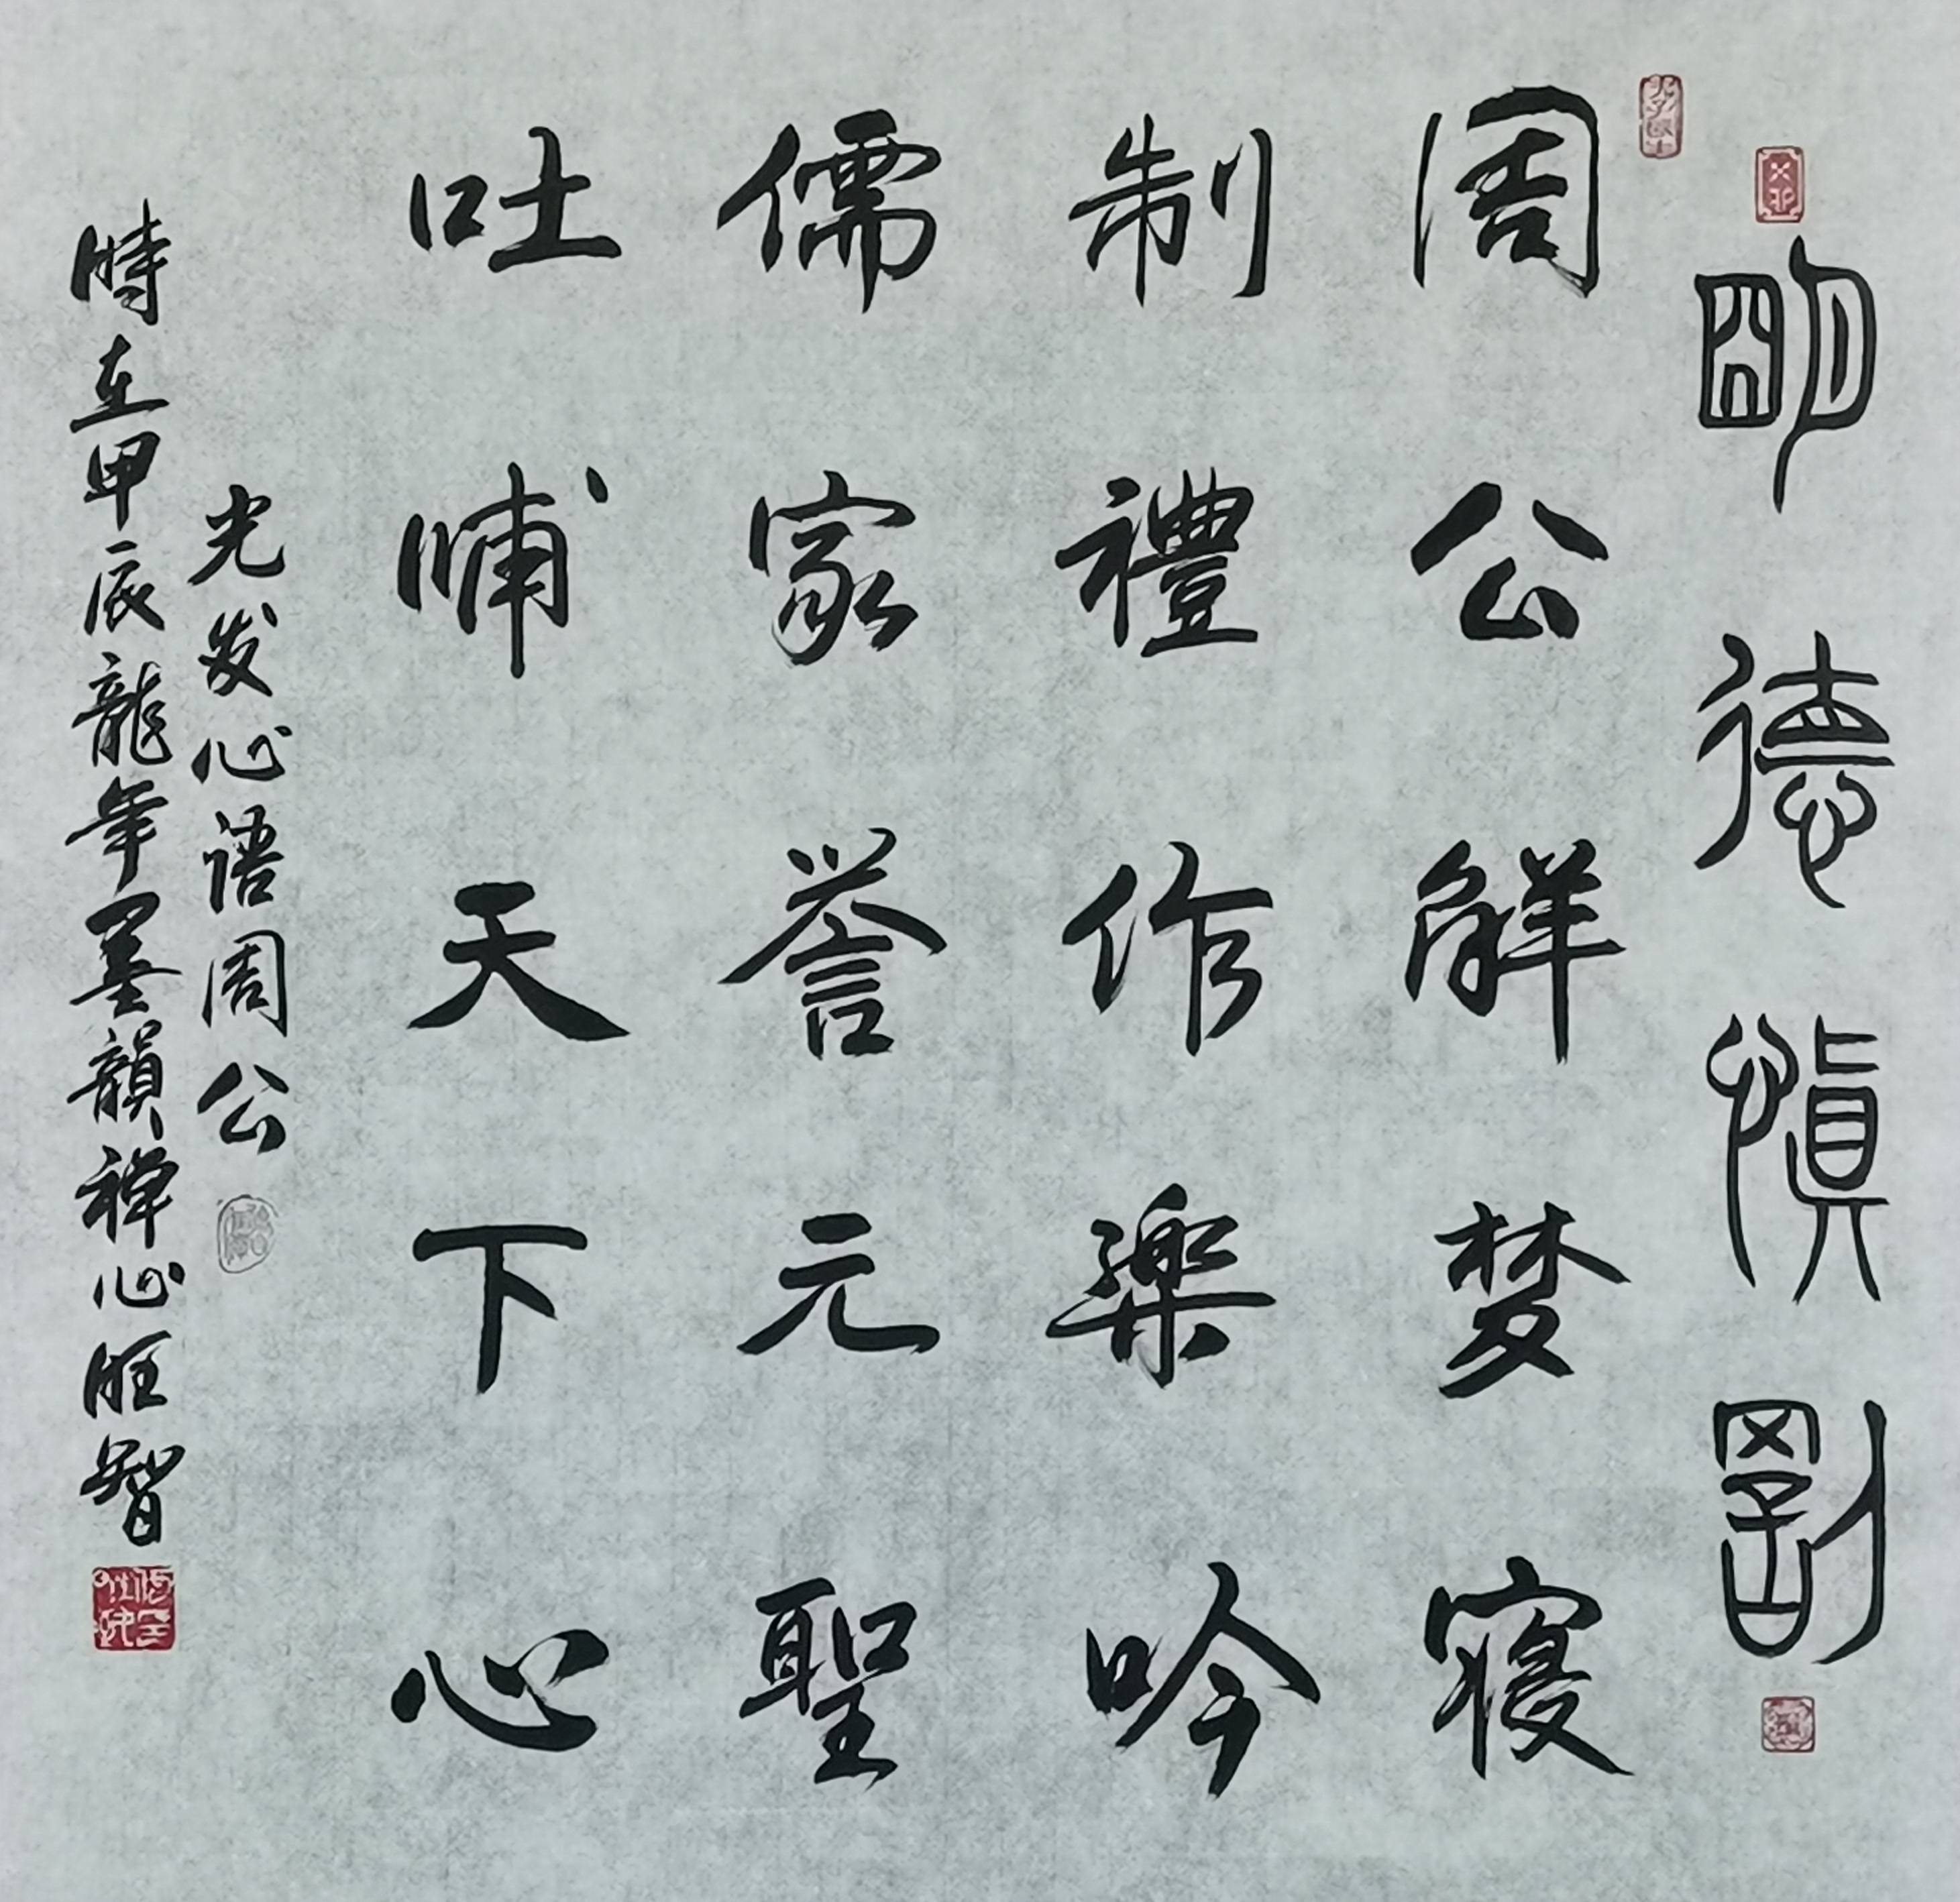 明德慎罰
周公解梦寝
制禮作樂吟
儒家誉元聖
吐哺天下心
光发心语周公
時在甲辰龍年墨韻禅心旺智